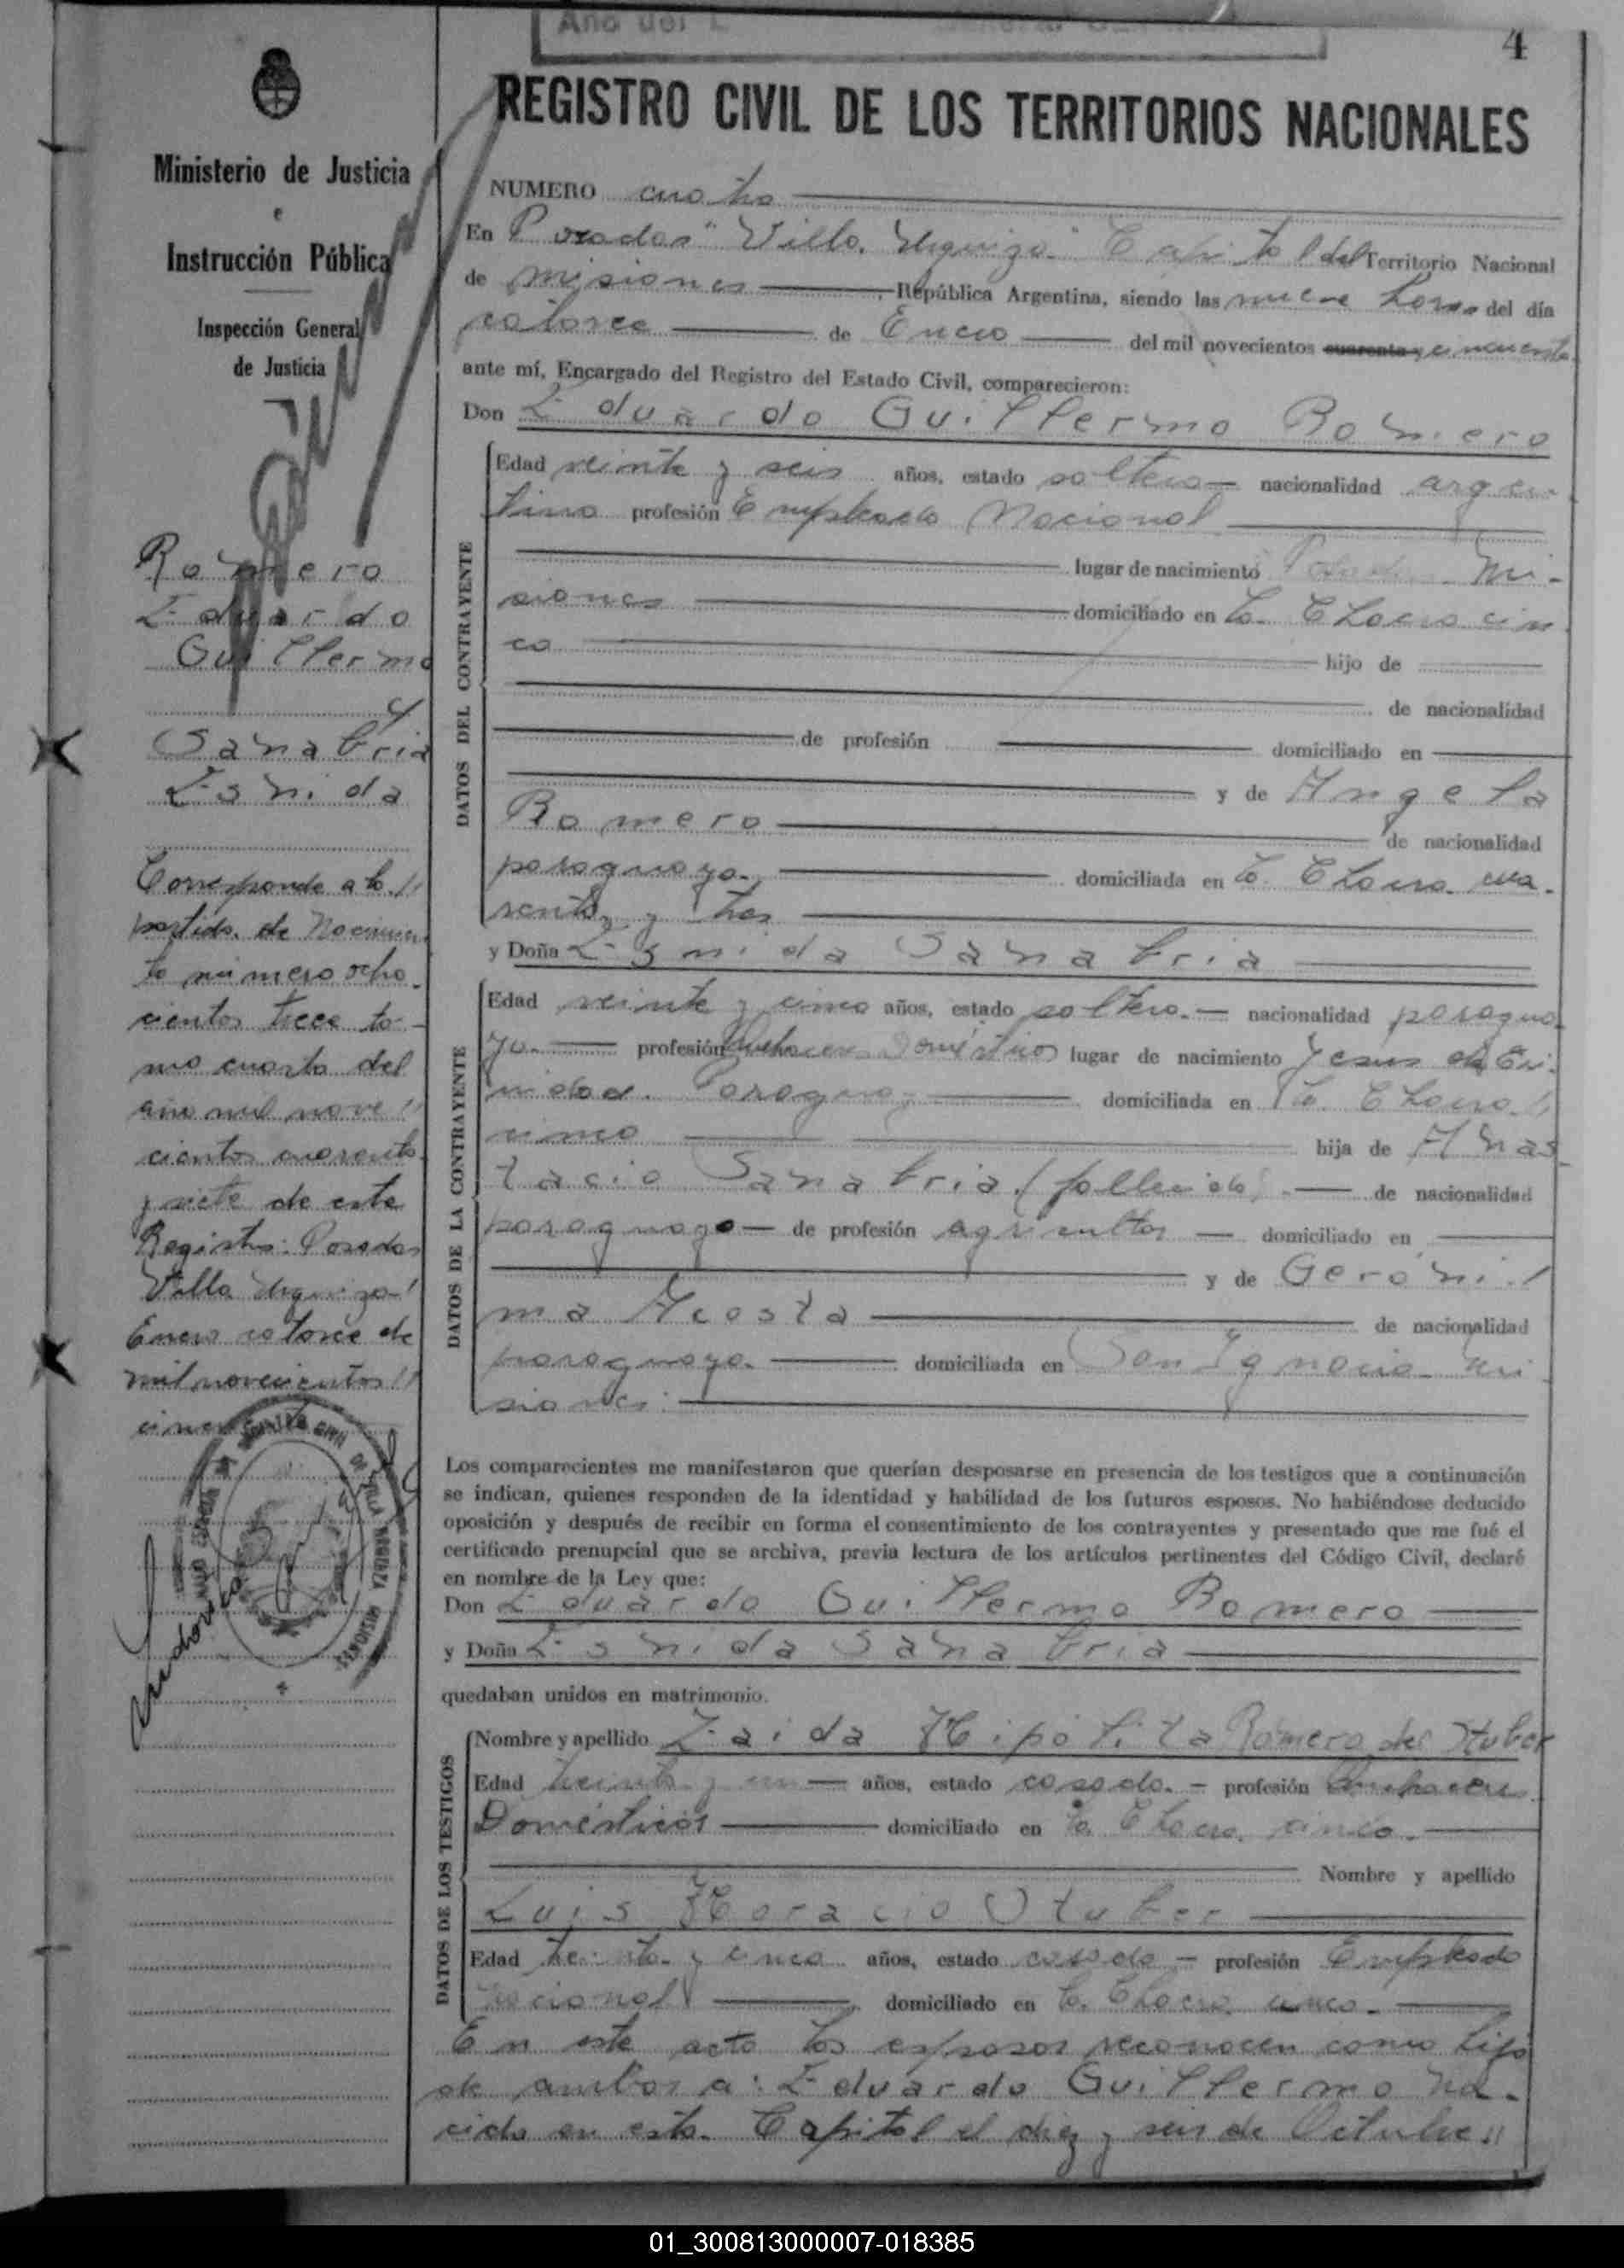 4
REGISTRO CIVIL DE LOS TERRITORIOS NACIONALES
Ministerio de Justicia
e
Instrucción Pública
Inspección General
de Justicia
Romero
Eduardo
Guillermo
y
Sanabria
Esnida
Corresponde a la
partida de Nacimien
to número ocho
cientos trece to-
mo cuarto del
año mil nove
cientos cuarenta
y siete de este
Registro: Posadas
Villa Urquiza
Enero catorce de
mil novecientos
cincuenta
NUMERO cuatro
En Posadas "Villa Urquiza" Capital del Territorio Nacional
de Misiones República Argentina, siendo las nueve horas del día
catorce de Enero del mil novecientos cuarenta y cincuenta
ante mí, Encargado del Registro del Estado Civil, comparecieron:
Don Eduardo Guillermo Romero
DATOS DEL CONTRAYENTE
Edad veinte y seis años, estado soltero nacionalidad argen-
tina profesión Empleado Nacional
lugar de nacimiento Posadas Mi-
siones domiciliado en la Chacra cin
co hijo de
de nacionalidad
de profesión domiciliado en
y de Angela
Romero de nacionalidad
paraguaya domiciliada en la Chacra cua-
renta y tres
y Doña Esnida Sanabria
DATOS DE LA CONTRAYENTE
Edad veinte y cinco años, estado soltera nacionalidad paragua-
ya profesión Quehaceres Domésticos lugar de nacimiento Jesus de Tri-
nidad Paraguay domiciliada en la Chacra
cinco hija de Anas-
tacio Sanabria (fallecido) de nacionalidad
paraguayo de profesión agricultor domiciliado en
y de Geróni
ma Acosta de nacionalidad
paraguaya domiciliada en San Ignacio Mi
siones
Los comparecientes me manifestaron que querían desposarse en presencia de los testigos que a continuación
se indican, quienes responden de la identidad y habilidad de los futuros esposos. No habiéndose deducido
oposición y después de recibir en forma el consentimiento de los contrayentes y presentado que me fué el
certificado prenupcial que se archiva, previa lectura de los artículos pertinentes del Código Civil, declaré
en nombre de la Ley que:
Don Eduardo Guillermo Romero
y Doña Esnida Sanabria
quedaban unidos en matrimonio.
DATOS DE LOS TESTIGOS
Nombre y apellido Zaida Hipólita Romero de Stuber
Edad treinta y un años, estado casada profesión Quehaceres
Domésticos domiciliado en la Chacra cinco
Nombre y apellido
Luis Horacio Stuber
Edad treinta y cinco años, estado casado profesión Empleado
Nacional domiciliado en la Chacra cinco
En este acto los esposos reconocen como hijo
de ambos a: Eduardo Guillermo na-
cido en esta Capital el diez y seis de Octubre
01_300813000007-018385